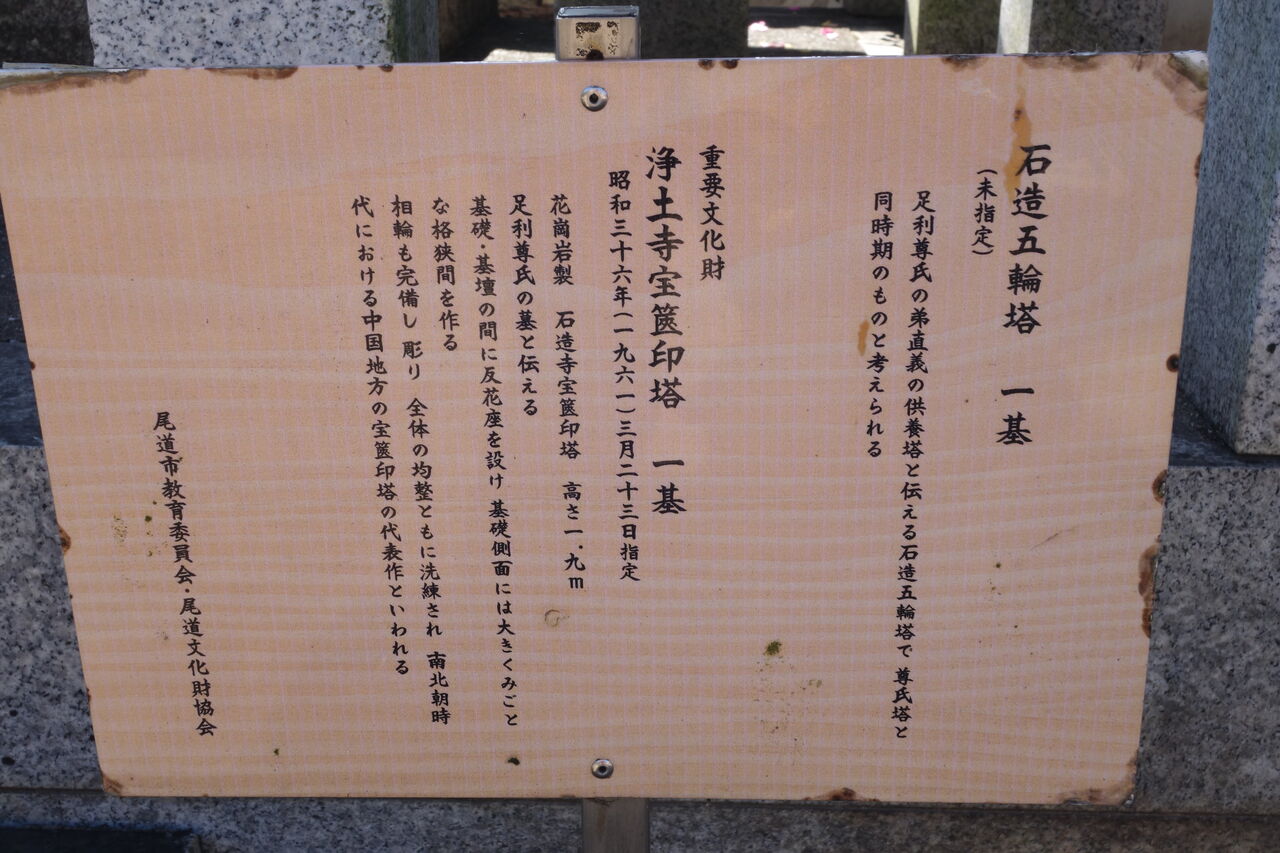 石造五輪塔　一基
(未指定)
足利尊氏の弟直義の供養塔と伝える石造五輪塔で 尊氏塔と
同時期のものと考えられる
重要文化財
浄土寺宝篋印塔　一基
昭和三十六年(一九六一)三月二十三日指定
花崗岩製　石造寺宝篋印塔　高さ一.九m
足利尊氏の墓と伝える
基礎・基壇の間に反花座を設け 基礎側面には大きくみごと
な格狭間を作る
相輪も完備し 彫り 全体の均整ともに洗練され 南北朝時
代における中国地方の宝篋印塔の代表作といわれる
尾道市教育委員会・尾道文化財協会